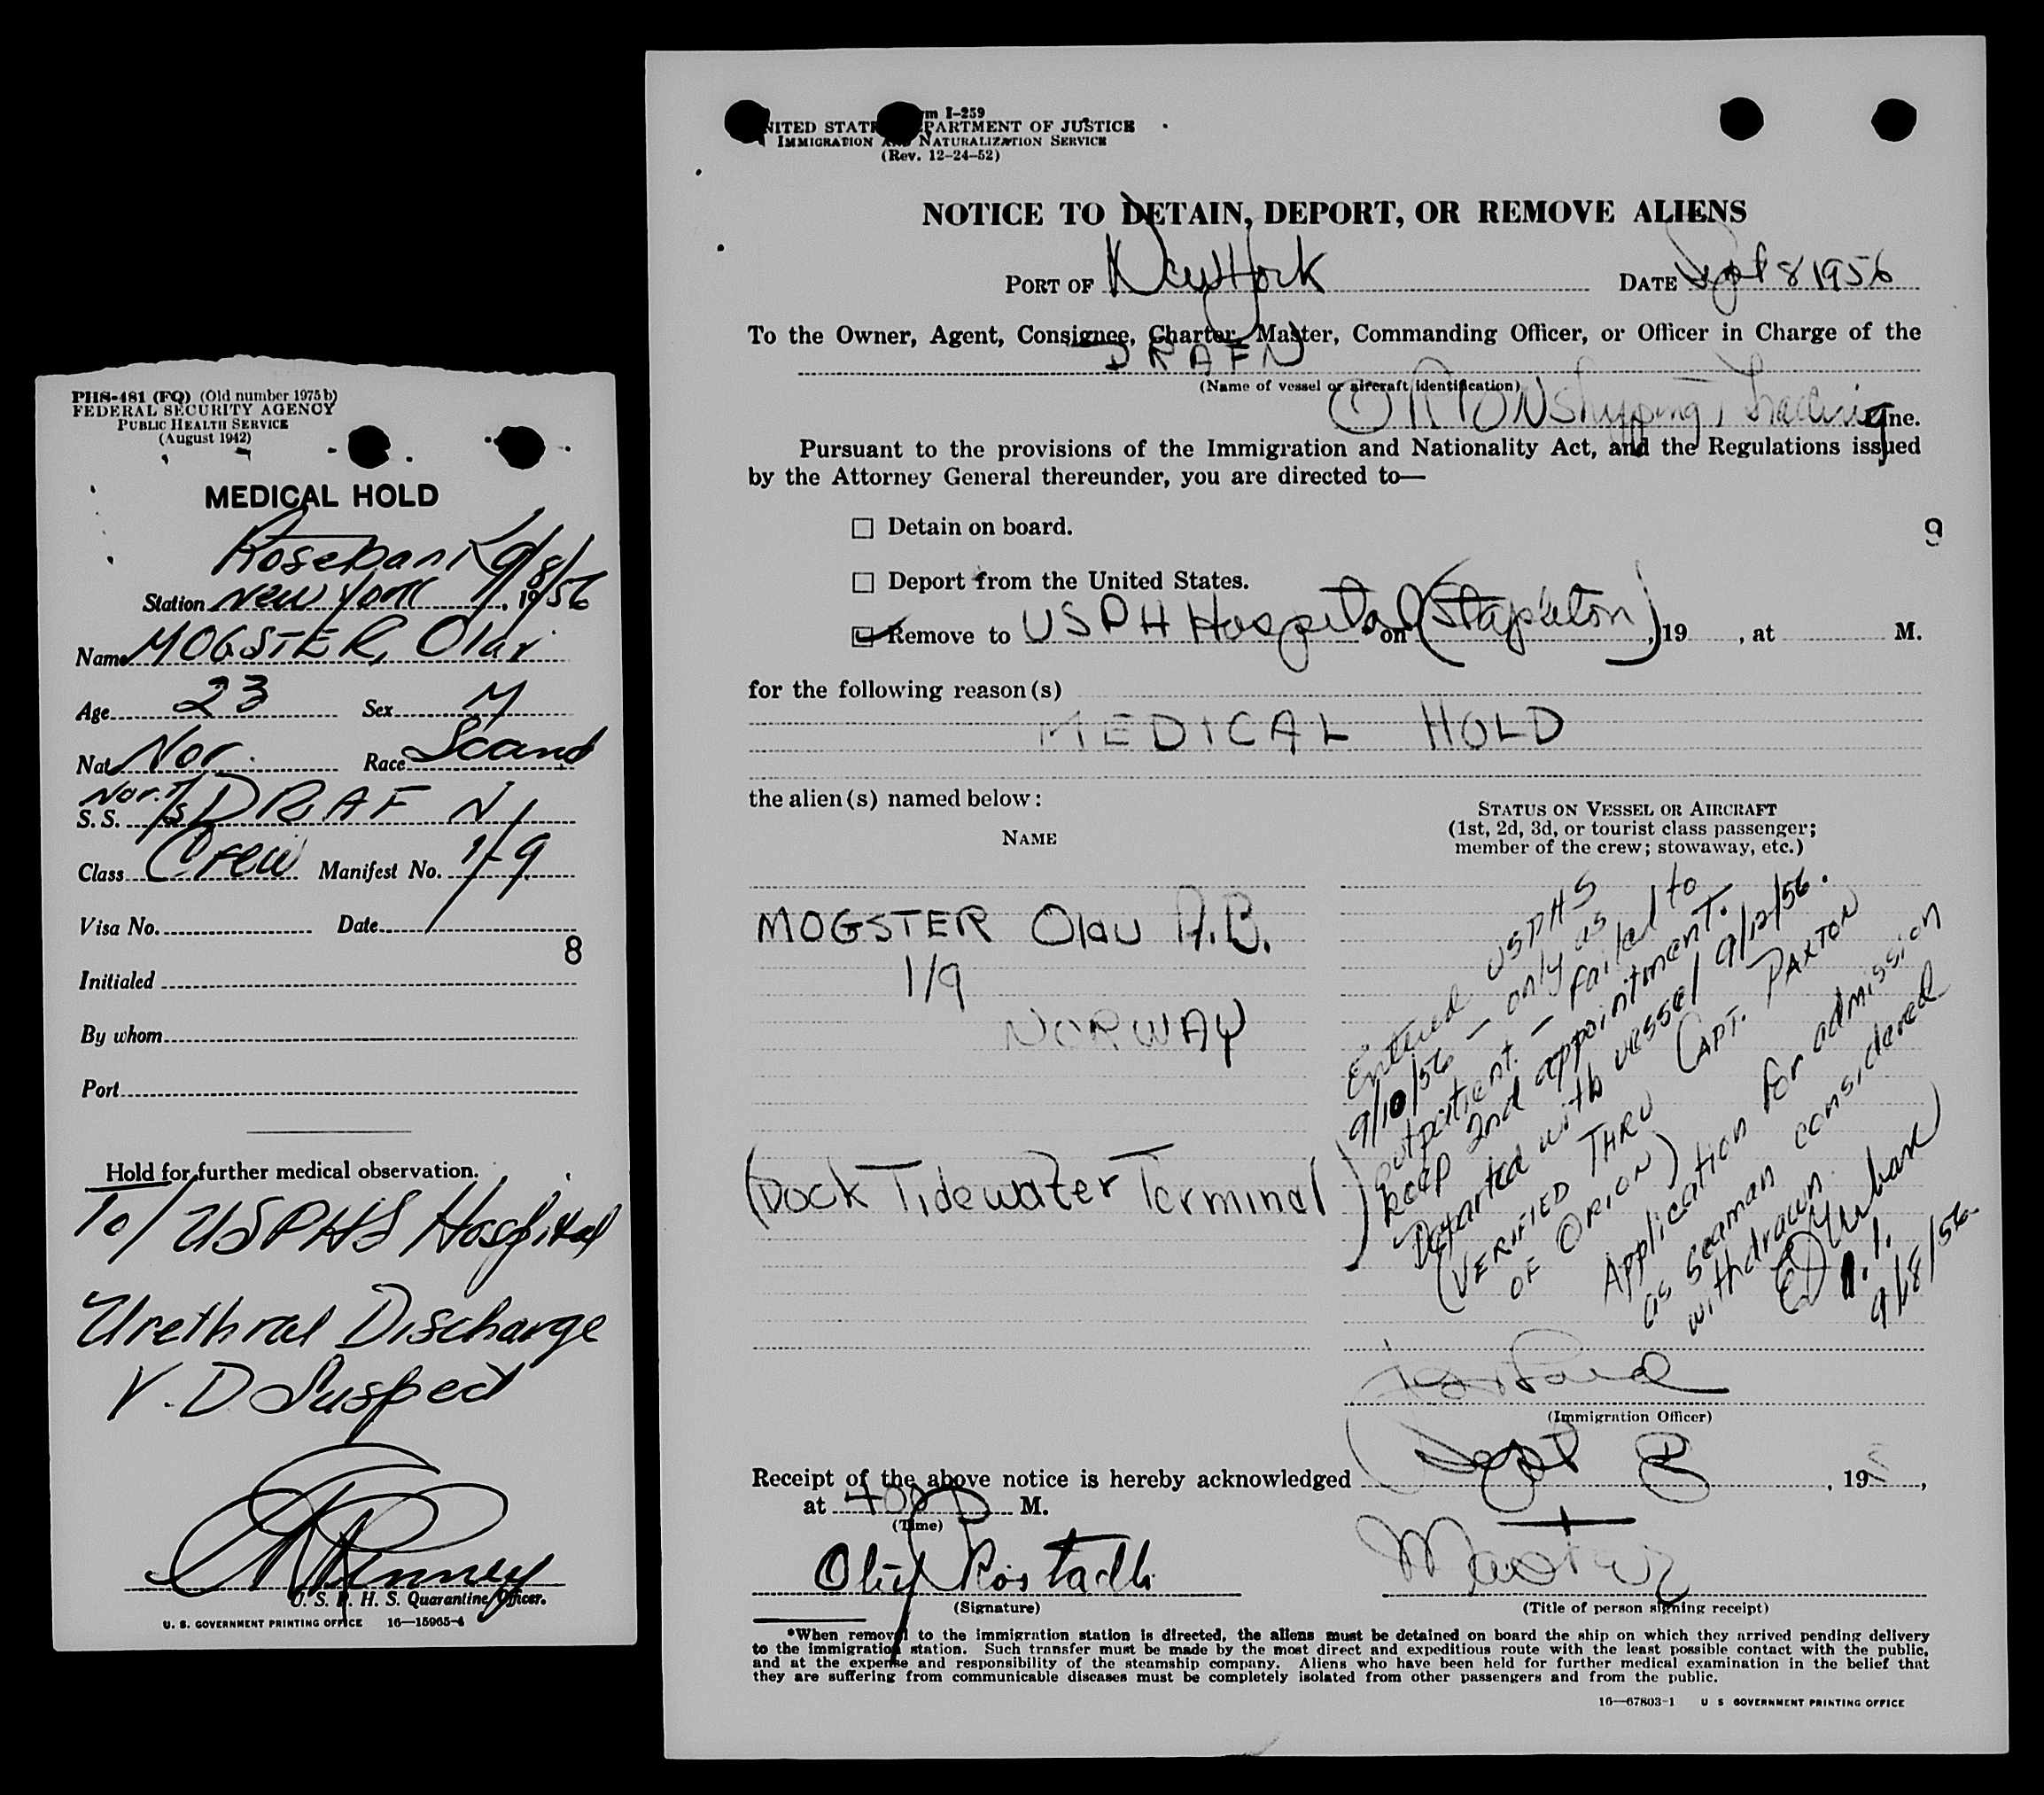 PHS-481 (FQ) (Old number 1975b)
FEDERAL SECURITY AGENCY
PUBLIC HEALTH SERVICE
(August 1942)
MEDICAL HOLD
Rosebank 9/8/56
Station New York , 19
Name MOGSTER, Olav
Age 23 Sex M
Nat. Nor. Race Scand
Nor. T/S
S. S. DRAFN
Class Crew Manifest No. 1-9
Visa No. Date
8
Initialed
By whom
Port
Hold for further medical observation.
To/ USPHS Hospital
Urethral Discharge
V.D Suspect
U. S. P. H. S. Quarantine Officer.
U. S. GOVERNMENT PRINTING OFFICE 16—15965-4
Form I-259
UNITED STATES DEPARTMENT OF JUSTICE
IMMIGRATION AND NATURALIZATION SERVICE
(Rev. 12-24-52)
NOTICE TO DETAIN, DEPORT, OR REMOVE ALIENS
PORT OF New York DATE Sept 8 1956
To the Owner, Agent, Consignee, Charter, Master, Commanding Officer, or Officer in Charge of the
DRAFN
(Name of vessel or aircraft identification)
ORION Shipping & Trading ne.
Pursuant to the provisions of the Immigration and Nationality Act, and the Regulations issued
by the Attorney General thereunder, you are directed to—
Detain on board.
9
Deport from the United States.
Remove to USPH Hospital on (Stapleton) , 19 , at M.
for the following reason(s)
MEDICAL HOLD
the alien(s) named below:
NAME
STATUS ON VESSEL OR AIRCRAFT
(1st, 2d, 3d, or tourist class passenger;
member of the crew; stowaway, etc.)
MOGSTER Olav A.B.
1/9
NORWAY
(Dock Tidewater Terminal)
Entered USPHS
9/10/56 — only as
outpatient. — failed to
keep 2nd appointment.
Departed with vessel 9/12/56.
(VERIFIED THRU CAPT. PAXTON
OF ORION)
Application for admission
as seaman considered
withdrawn.
9/18/56.
(Immigration Officer)
Receipt of the above notice is hereby acknowledged Sept 8 , 195 ,
at 400 P M.
(Time)
Master
(Signature)
(Title of person signing receipt)
*When removal to the immigration station is directed, the aliens must be detained on board the ship on which they arrived pending delivery
to the immigration station. Such transfer must be made by the most direct and expeditious route with the least possible contact with the public,
and at the expense and responsibility of the steamship company. Aliens who have been held for further medical examination in the belief that
they are suffering from communicable diseases must be completely isolated from other passengers and from the public.
16—67803-1 U S GOVERNMENT PRINTING OFFICE